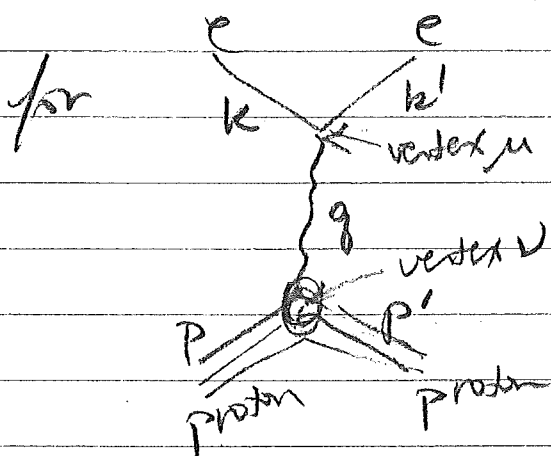 e e
for
k k'
vertex μ
q
vertex ν
p p'
proton proton